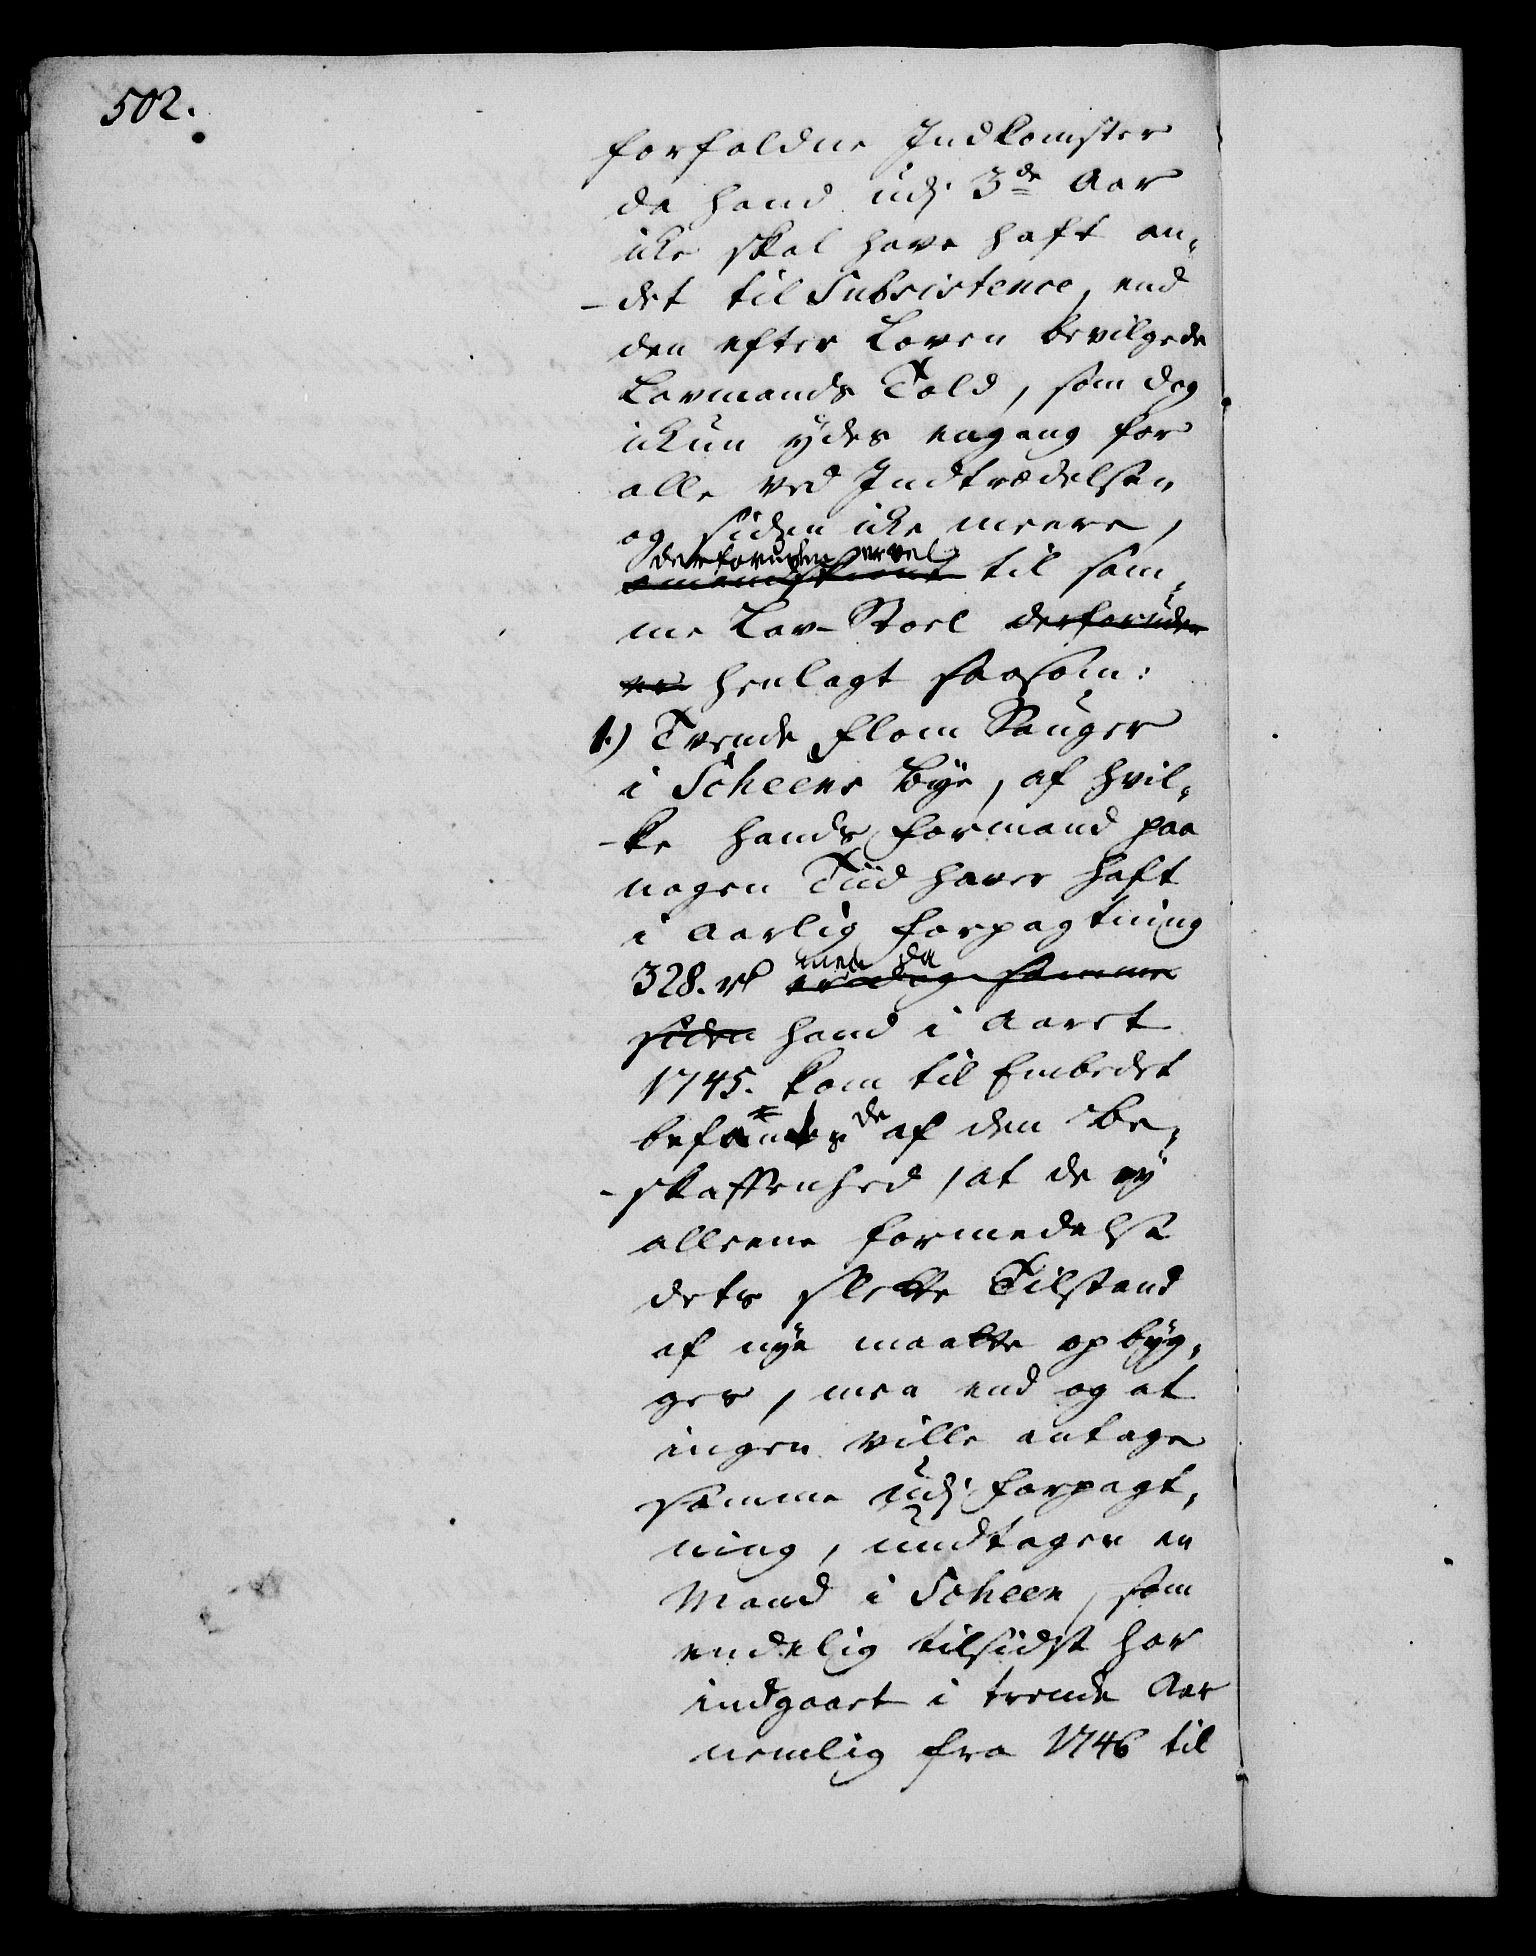 502.
forfaldne Indkomster
da hand udj 3de Aar
icke skal have haft an„
-det til Subsistence, end
den efter Loven bevilgede
Lavmands Told, som dog
ickun ydes engang for
alle ved Indtrædelsen
og siden icke meere,
derforuden er vel
til sam„
me Lav-Stoel derforuden
er henlagt saasom:
1.) Trende Flom Sauger
i Scheens bye, af hvil„
-ke hands Formand paa
nogen Tiid haver haft
i aarlig Forpagtning
men da
328. rd er dog samme
siden hand i Aaret
1745. kom til Embedet
befantes de af den Be„
-skaffenhed, at de ey
alleene formedelst
dets slette Tilstand
af nye maatte opbyg„
ges, men end og at
ingen ville antage
samme udj Forpagt„
ning, undtagen en
Mand i Scheen, som
endelig tilsidst har
indgaaet i trende Aar
nemlig fra 1746 til